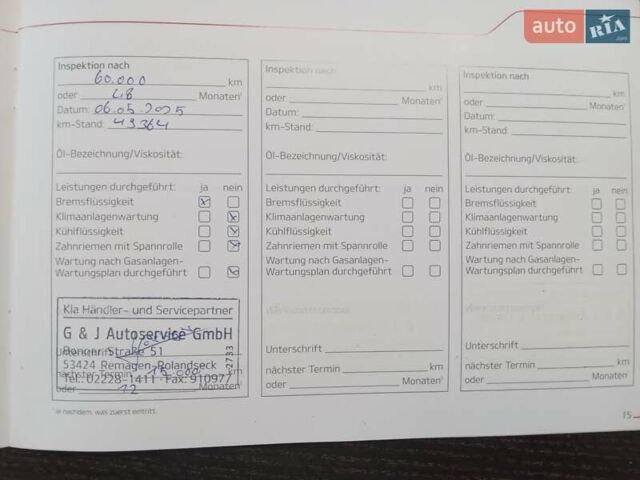 auto RIA .com
Inspektion nach
60.000 km
oder 48 Monaten
Datum: 06.05.2025
km-Stand: 49364
Öl-Bezeichnung/Viskosität:
Leistungen durchgeführt: ja nein
Bremsflüssigkeit
Klimaanlagenwartung
Kühlflüssigkeit
Zahnriemen mit Spannrolle
Wartung nach Gasanlagen-
Wartungsplan durchgeführt
Kia Händler- und Servicepartner
G & J Autoservice GmbH
Bonner Straße 51
53424 Remagen-Rolandseck
Tel.: 02228-1411 Fax: 910977
2733
Unterschrift
nächster Termin 15.000 km
oder 12 Monaten
Inspektion nach
km
oder Monaten
Datum:
km-Stand:
Öl-Bezeichnung/Viskosität:
Leistungen durchgeführt: ja nein
Bremsflüssigkeit
Klimaanlagenwartung
Kühlflüssigkeit
Zahnriemen mit Spannrolle
Wartung nach Gasanlagen-
Wartungsplan durchgeführt
Unterschrift
nächster Termin km
oder Monaten
Inspektion nach
km
oder Monaten
Datum:
km-Stand:
Öl-Bezeichnung/Viskosität:
Leistungen durchgeführt: ja nein
Bremsflüssigkeit
Klimaanlagenwartung
Kühlflüssigkeit
Zahnriemen mit Spannrolle
Wartung nach Gasanlagen-
Wartungsplan durchgeführt
Unterschrift
nächster Termin km
oder Monaten
je nachdem, was zuerst eintritt.
15